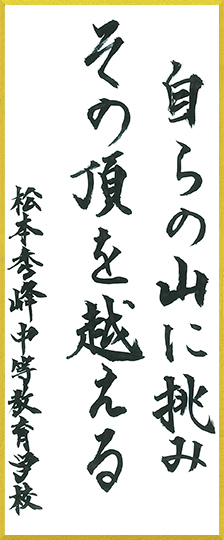 自らの山に挑み
その頂を越える
松本秀峰中等教育学校